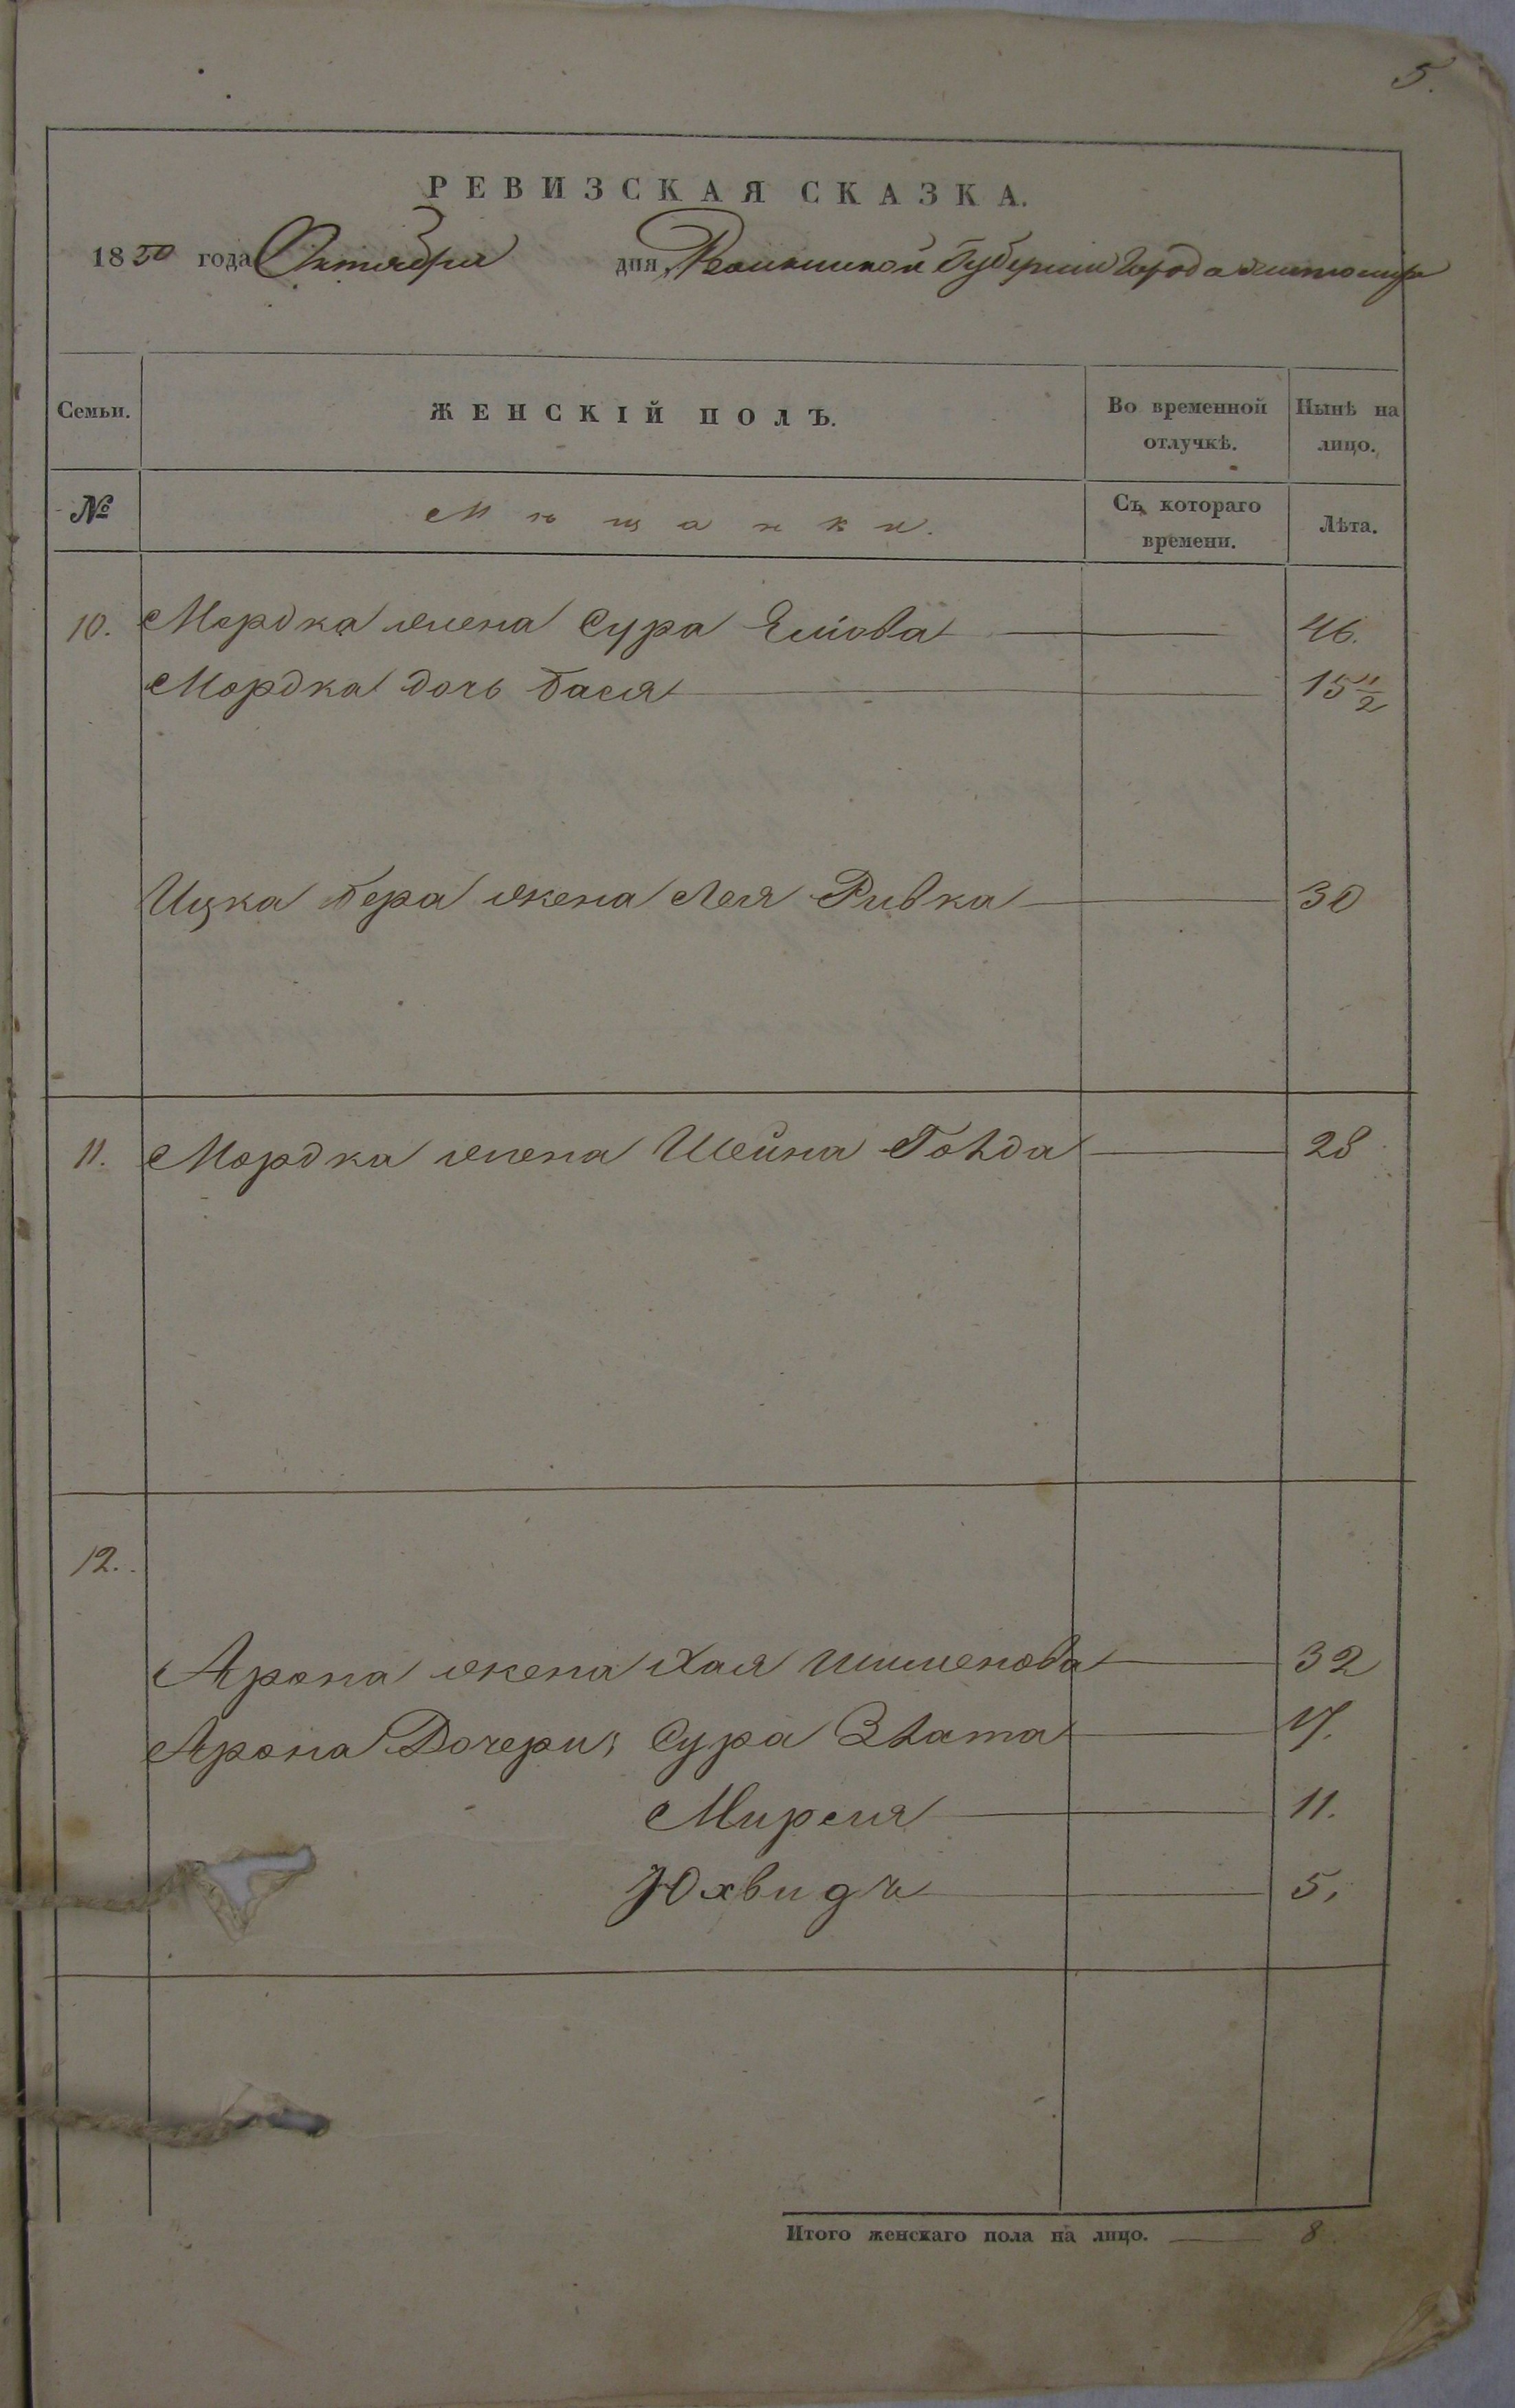 5.
РЕВИЗСКАЯ СКАЗКА.
1850 года Октября дня, Волынской Губернии Города Житомира
Семьи. ЖЕНСКІЙ ПОЛЪ. Во временной отлучкѣ. Нынѣ на лицо.
№ Мѣщанки. Съ котораго времени. Лѣта.
10. Мордка жена Сура 46.
Мордка дочь Бася 15 1/2
Ицка Бера жена Лея Ривка 30
11. Мордка жена Шейна Голда 28
12.
Арона жена Хая Шименова 32
Арона Дочери, Сура Злата 17.
Миреля 11.
Юхвидъ 5,
Итого женскаго пола на лицо. 8.